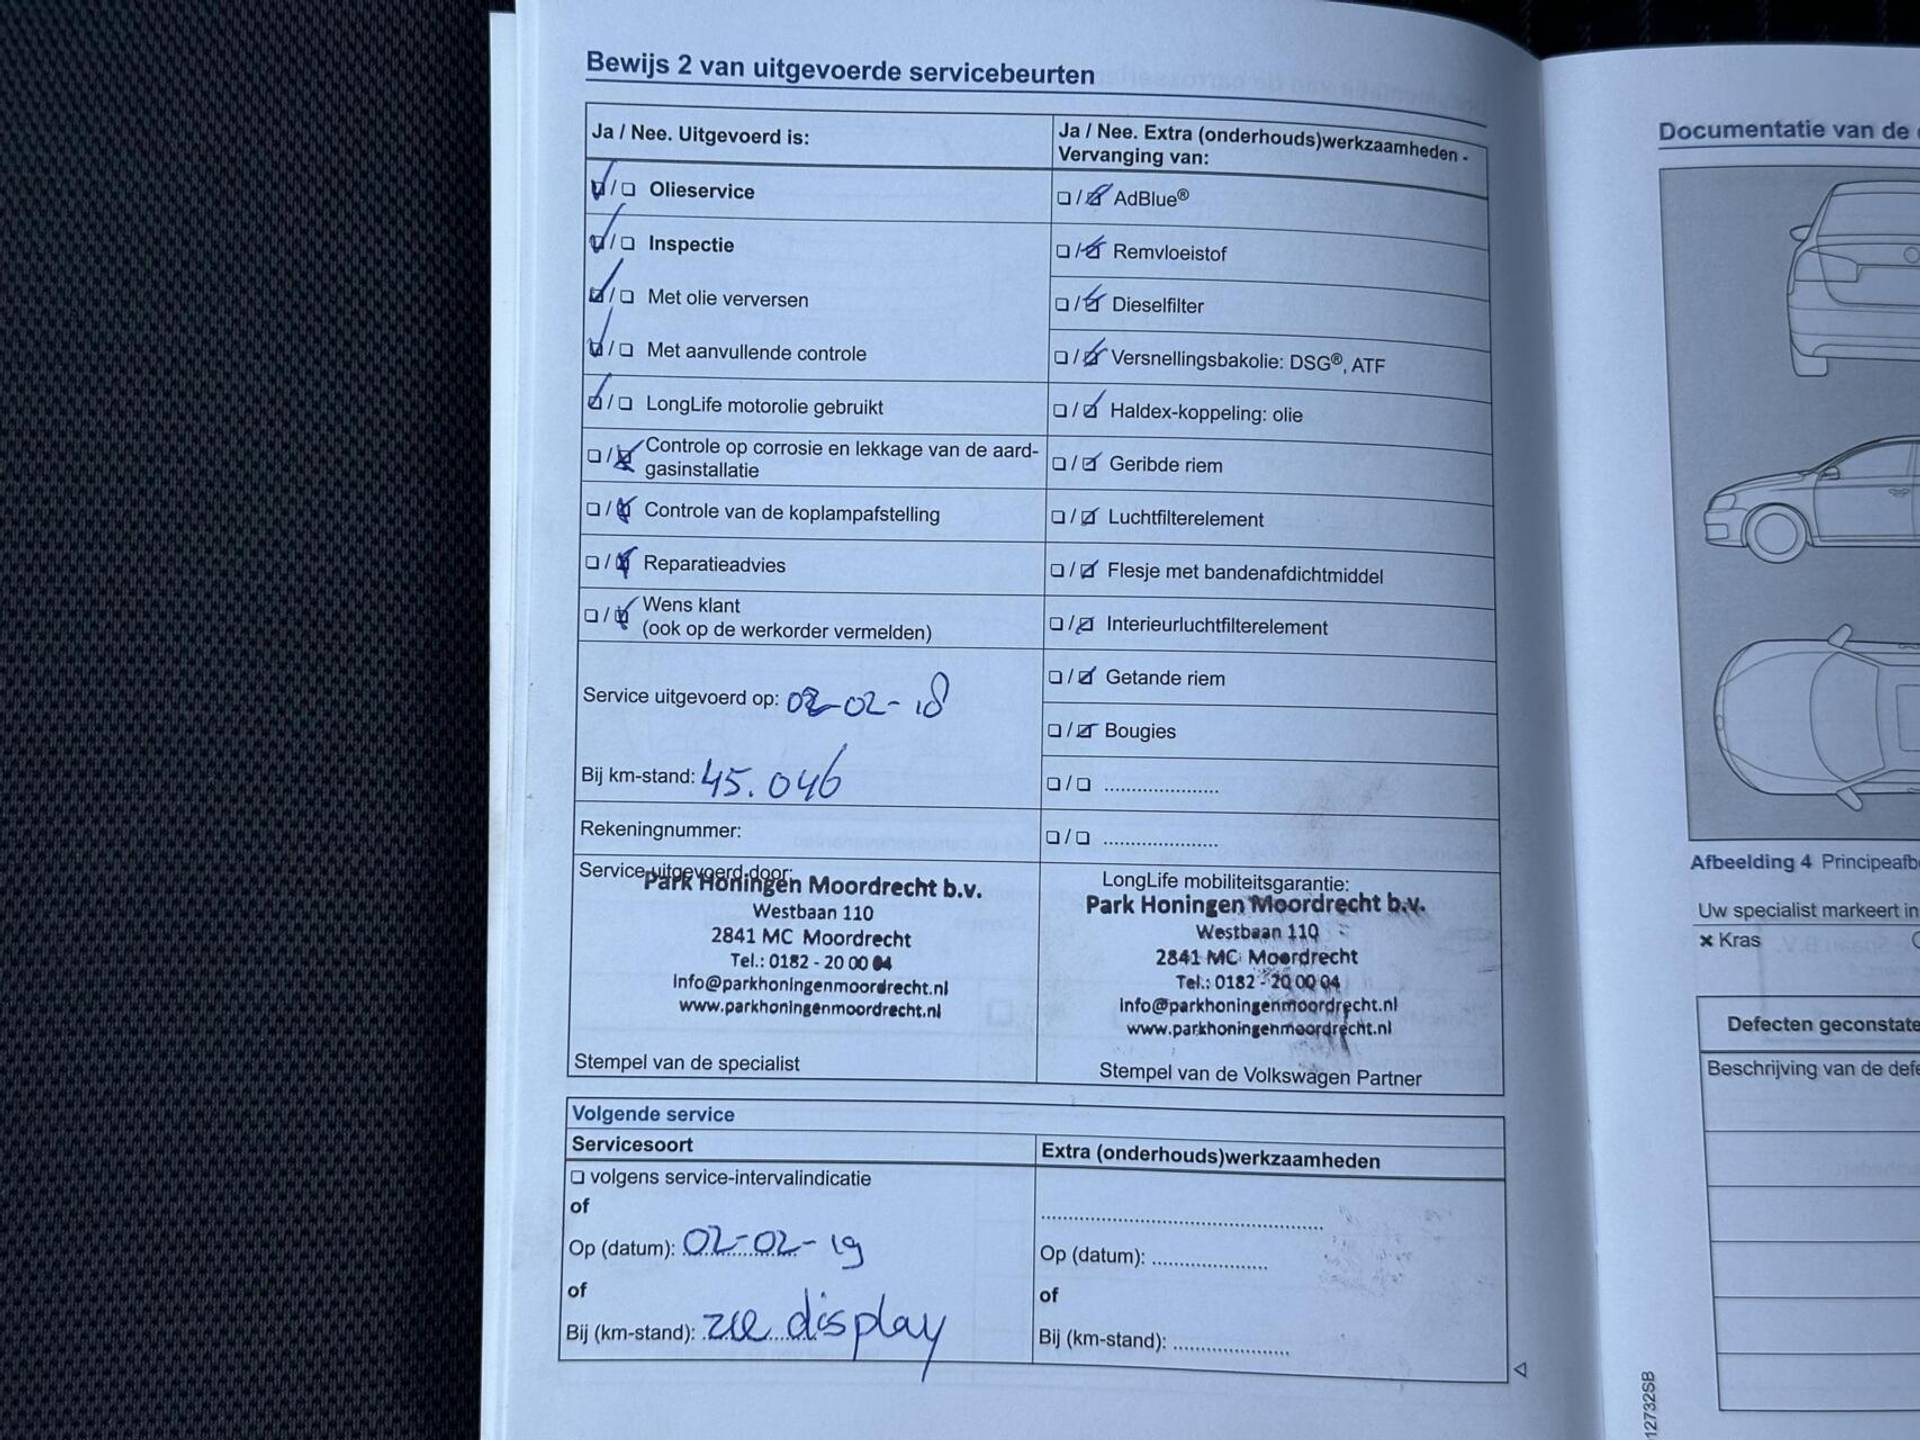 Bewijs 2 van uitgevoerde servicebeurten
Ja / Nee. Uitgevoerd is:
☑/☐ Olieservice
☑/☐ Inspectie
☑/☐ Met olie verversen
☑/☐ Met aanvullende controle
☑/☐ LongLife motorolie gebruikt
☐/☑ Controle op corrosie en lekkage van de aard-
gasinstallatie
☐/☑ Controle van de koplampafstelling
☐/☑ Reparatieadvies
☐/☑ Wens klant
(ook op de werkorder vermelden)
Service uitgevoerd op: 02-02-18
Bij km-stand: 45.046
Rekeningnummer:
Service uitgevoerd door:
Park Honingen Moordrecht b.v.
Westbaan 110
2841 MC Moordrecht
Tel.: 0182 - 20 00 04
Info@parkhoningenmoordrecht.nl
www.parkhoningenmoordrecht.nl
Stempel van de specialist
Ja / Nee. Extra (onderhouds)werkzaamheden -
Vervanging van:
☐/☑ AdBlue®
☐/☑ Remvloeistof
☐/☑ Dieselfilter
☐/☑ Versnellingsbakolie: DSG®, ATF
☐/☑ Haldex-koppeling: olie
☐/☑ Geribde riem
☐/☑ Luchtfilterelement
☐/☑ Flesje met bandenafdichtmiddel
☐/☑ Interieurluchtfilterelement
☐/☑ Getande riem
☐/☑ Bougies
☐/☐ .....................
☐/☐ .....................
LongLife mobiliteitsgarantie:
Park Honingen Moordrecht b.v.
Westbaan 110
2841 MC Moordrecht
Tel.: 0182 - 20 00 04
Info@parkhoningenmoordrecht.nl
www.parkhoningenmoordrecht.nl
Stempel van de Volkswagen Partner
Volgende service
Servicesoort
☐ volgens service-intervalindicatie
of
Op (datum): 02-02-19
of
Bij (km-stand): zie display
Extra (onderhouds)werkzaamheden
....................................................
Op (datum): .....................
of
Bij (km-stand): .....................
Documentatie van de
Afbeelding 4 Principeafb
Uw specialist markeert in
× Kras
Defecten geconstate
Beschrijving van de defe
12732SB